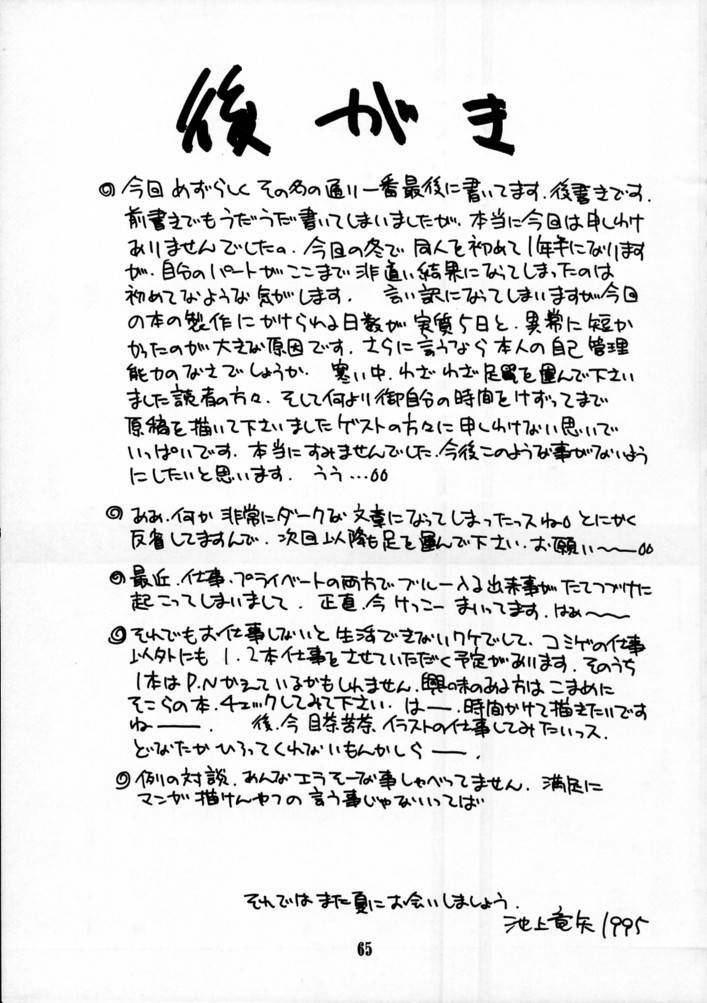 後がき
◎ 今回 めずらしく その名の通り一番最後に書いてます.後書きです.
前書きでもうだうだ書いてしまいましたが.本当に今回は申しわけ
ありませんでしたの.今回の冬で 同人を初めて1年半になります
が.自分のパートがここまで 非道い結果になってしまったのは
初めてなような気がします. 言い訳になってしまいますが今回
の本の製作にかけられる日数が 実質5日と.異常に短か
かったのが大きな原因です.さらに言うなら 本人の自己管理
能力のなさでしょうか. 寒い中.わざわざ足を運んで下さい
ました読者の方々.そして何より御自分の時間をけずってまで
原稿を描いて下さいましたゲストの方々に申しわけない思いで
いっぱいです.本当にすみませんでした.今後このような事がないよう
にしたいと思います. うぅ…。。
◎ ああ.何か 非常にダークな 文章になってしまったっスね。とにかく
反省してますんで.次回以降も足を運んで下さい.お願い〜〜。。
◎ 最近.仕事.プライベートの両方で ブルー入る出来事がたてつづけに
起こってしまいまして. 正直.今 けっこー まいってます.はぁ〜〜
◎ それでもお仕事しないと生活できないワケでして.コミケの仕事
以外にも 1.2本仕事をさせていただく予定があります.そのうち
1本はP.Nかえているかもしれません.興味のある方はこまめに
そこらの本.チェックしてみて下さい. はー.時間かけて描きたいです
ねーー. 後.今 イラストの仕事してみたいっス.
どなたか ひろってくれないもんかしらーー.
◎ 例の対談.あんなエラそーな事しゃべってません. 満足に
マンガ描けんやつの言う事じゃないってば
それでは また夏に お会いしましょう.
池上竜矢 1995
65